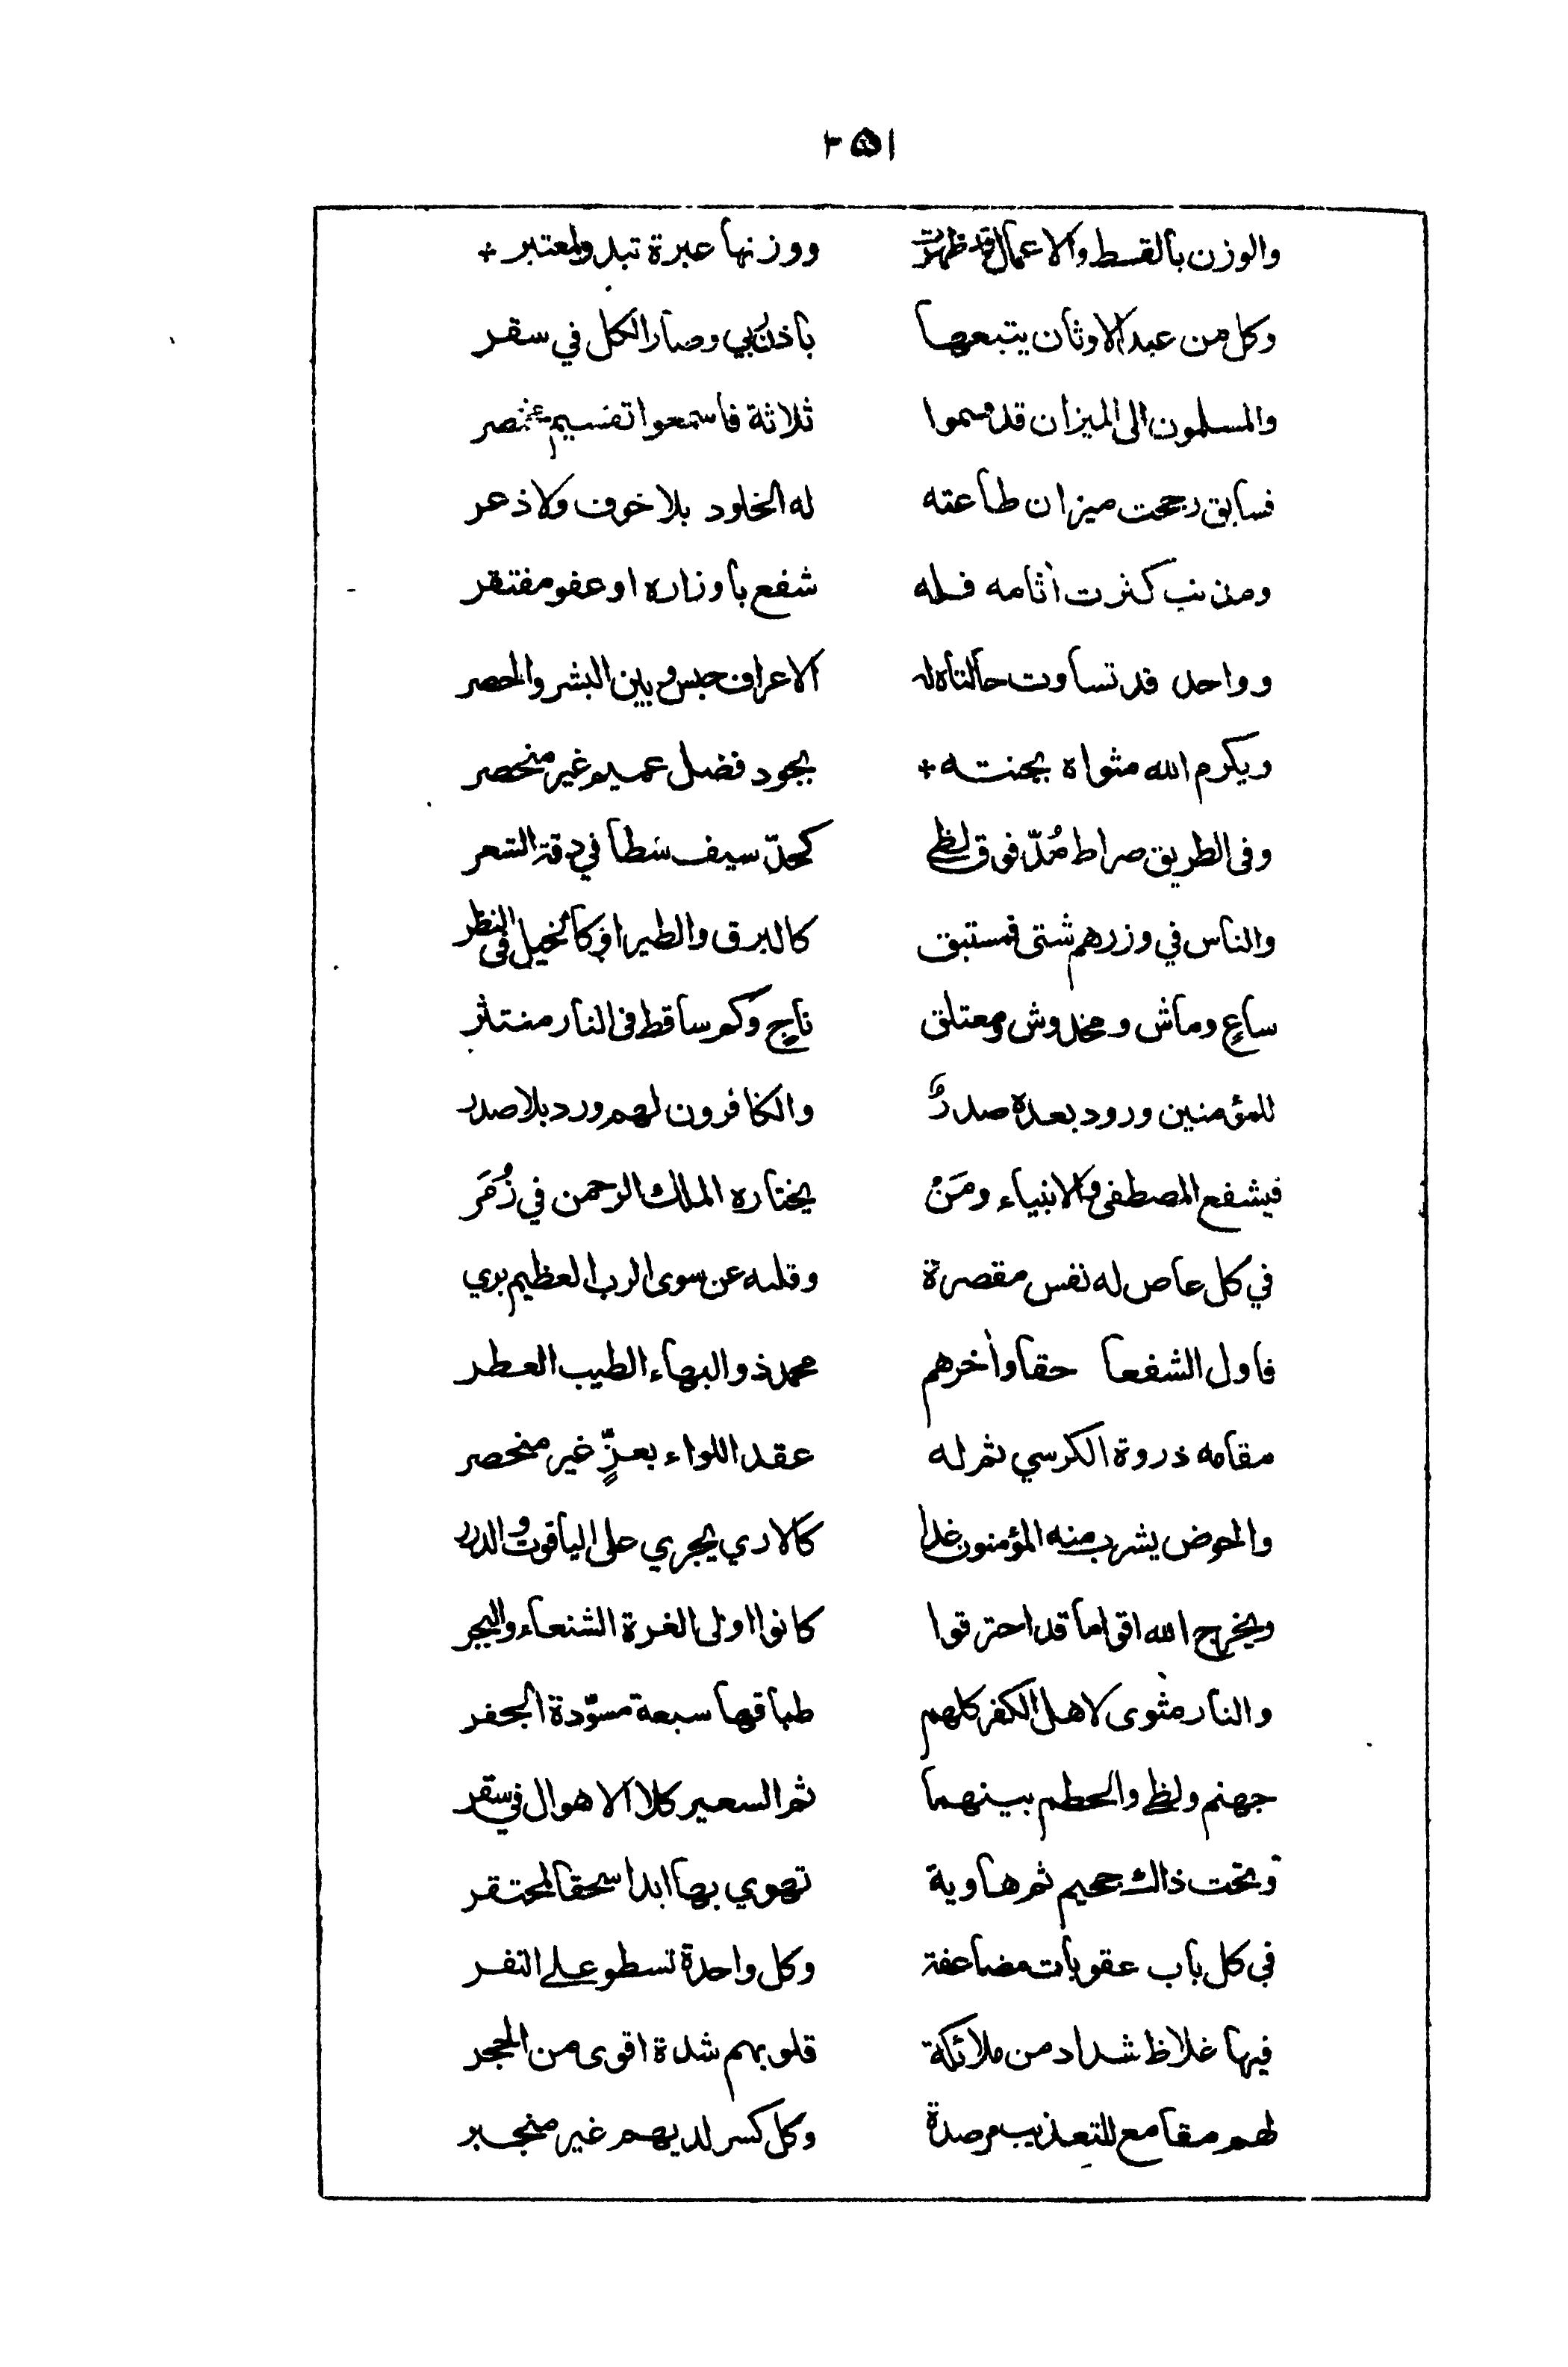 ٣٥١
والوزن بالقسط والاعمال قد ظهرت ووزنها عبرة تبدو لمعتبر
وكل من عبد الاوثان يتبعها باذن ربي وصار الكل في سقر
والمسلمون الى الميزان قد قسموا ثلاثة فاسمعوا تقسيم مختصر
فسابق رجحت ميزان طاعته له الخلود بلا خوف ولا ذعر
ومذنب كثرت اثامه فله شفع باوزاره او عفو مفتقر
وواحد قد تساوت حالتاه له الاعراف حبس وبين البشر والحصر
ويكرم الله مثواه بجنته بجود فضل عميم غير منحصر
وفى الطريق صراط مُدّ فوق لظى كحدّ سيف سطا في دقة الشعر
والناس في وزرهم شتى فمستبق كالبرق والطير او كالخيل فى النظر
ساعٍ وماش ومخدوش ومعتلق ناجٍ وكم ساقط فى النار منتثر
للمؤمنين ورود بعده صدرٌ والكافرون لهم ورد بلا صدر
فيشفع المصطفى والانبياء ومَنْ يختاره الملك الرحمن في زُمَر
في كل عاص له نفس مقصرة وقلبه عن سوى الرب العظيم بري
فاول الشفعا حقا وأخرهم محمد ذو البهاء الطيب العطر
مقامه ذروة الكرسي ثم له عقد اللواء بعزٍّ غير منحصر
والحوض يشرب منه المؤمنون غدا كالاري يجري على الياقوت والدرر
ويخرج الله اقواما قد احترقوا كانوا اولى الغرة الشنعاء والبجر
والنار مثوى لاهل الكفر كلهم طباقها سبعة مسوّدة الحفر
جهنم ولظى والحطم بينهما ثم السعير كلا الاهوال في سقر
وتحت ذاك جحيم ثم هاوية تهوي بها ابدا سحقا لمحتقر
في كل باب عقوبات مضاعفة وكل واحدة تسطو على النفر
فيها غلاظ شداد من ملائكة قلوبهم شدة اقوى من الحجر
لهم مقامع للتعذيب مرصدة وكل كسر لديهم غير منجبر